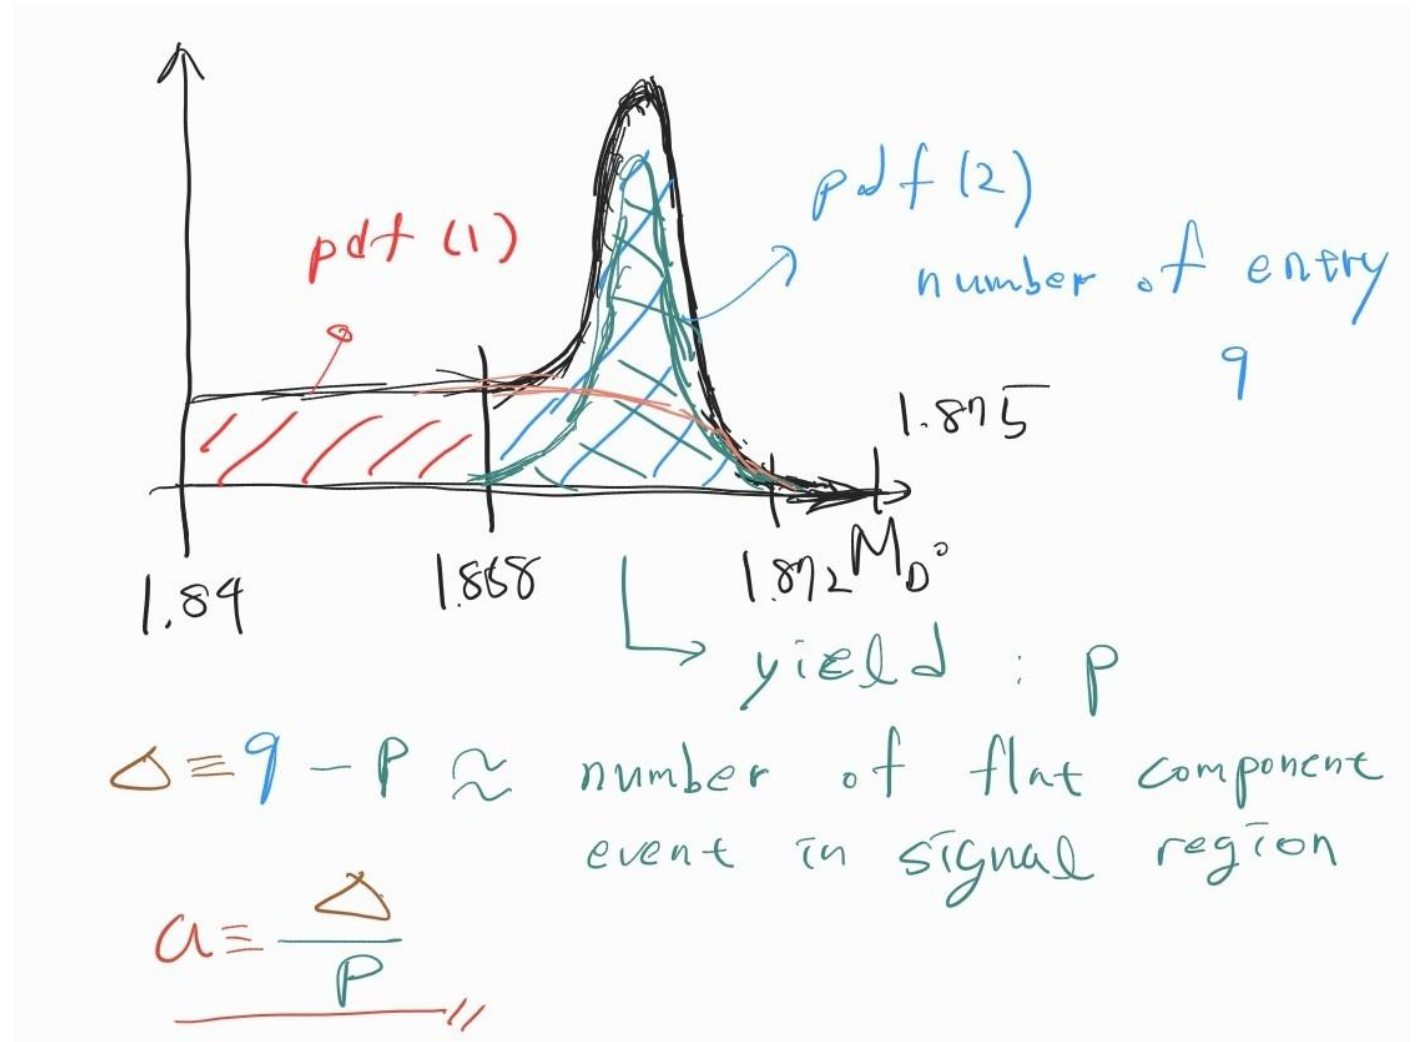 pdf (1)
pdf (2)
number of entry
q
1.875
1.84
1.868
1.872
M_D⁰
yield : p
Δ ≡ q - p ≈ number of flat component
event in signal region
a ≡ Δ / p